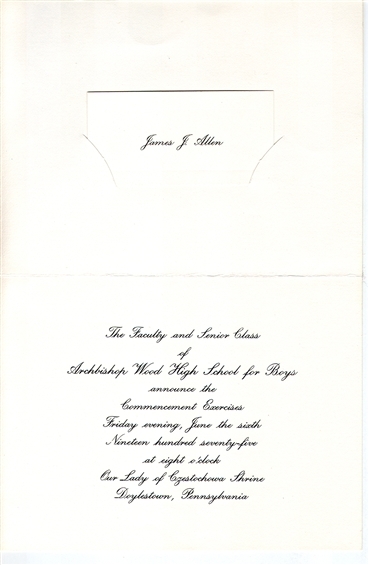 James J. Allen
The Faculty and Senior Class
of
Archbishop Wood High School for Boys
announce the
Commencement Exercises
Friday evening, June the sixth
Nineteen hundred seventy-five
at eight o'clock
Our Lady of Czestochowa Shrine
Doylestown, Pennsylvania